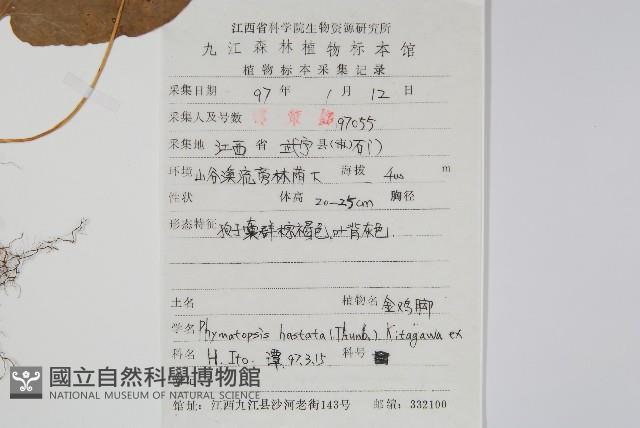 江西省科学院生物资源研究所
九江森林植物标本馆
植物标本采集记录
采集日期 97 年 1 月 12 日
采集人及号数 97055
采集地 江西 省 武宁 县(市)石门
环境 山谷溪流旁林荫下 海拔 400 m
性状 体高 20—25cm 胸径
形态特征 孢子囊群棕褐色,叶背灰色.
土名 植物名 金鸡脚
学名 Phymatopsis hastata (Thunb.) Kitagawa ex
科名 H. Ito. 谭 97.3.15 科号
國立自然科學博物館
NATIONAL MUSEUM OF NATURAL SCIENCE
馆址:江西九江县沙河老街143号 邮编:332100